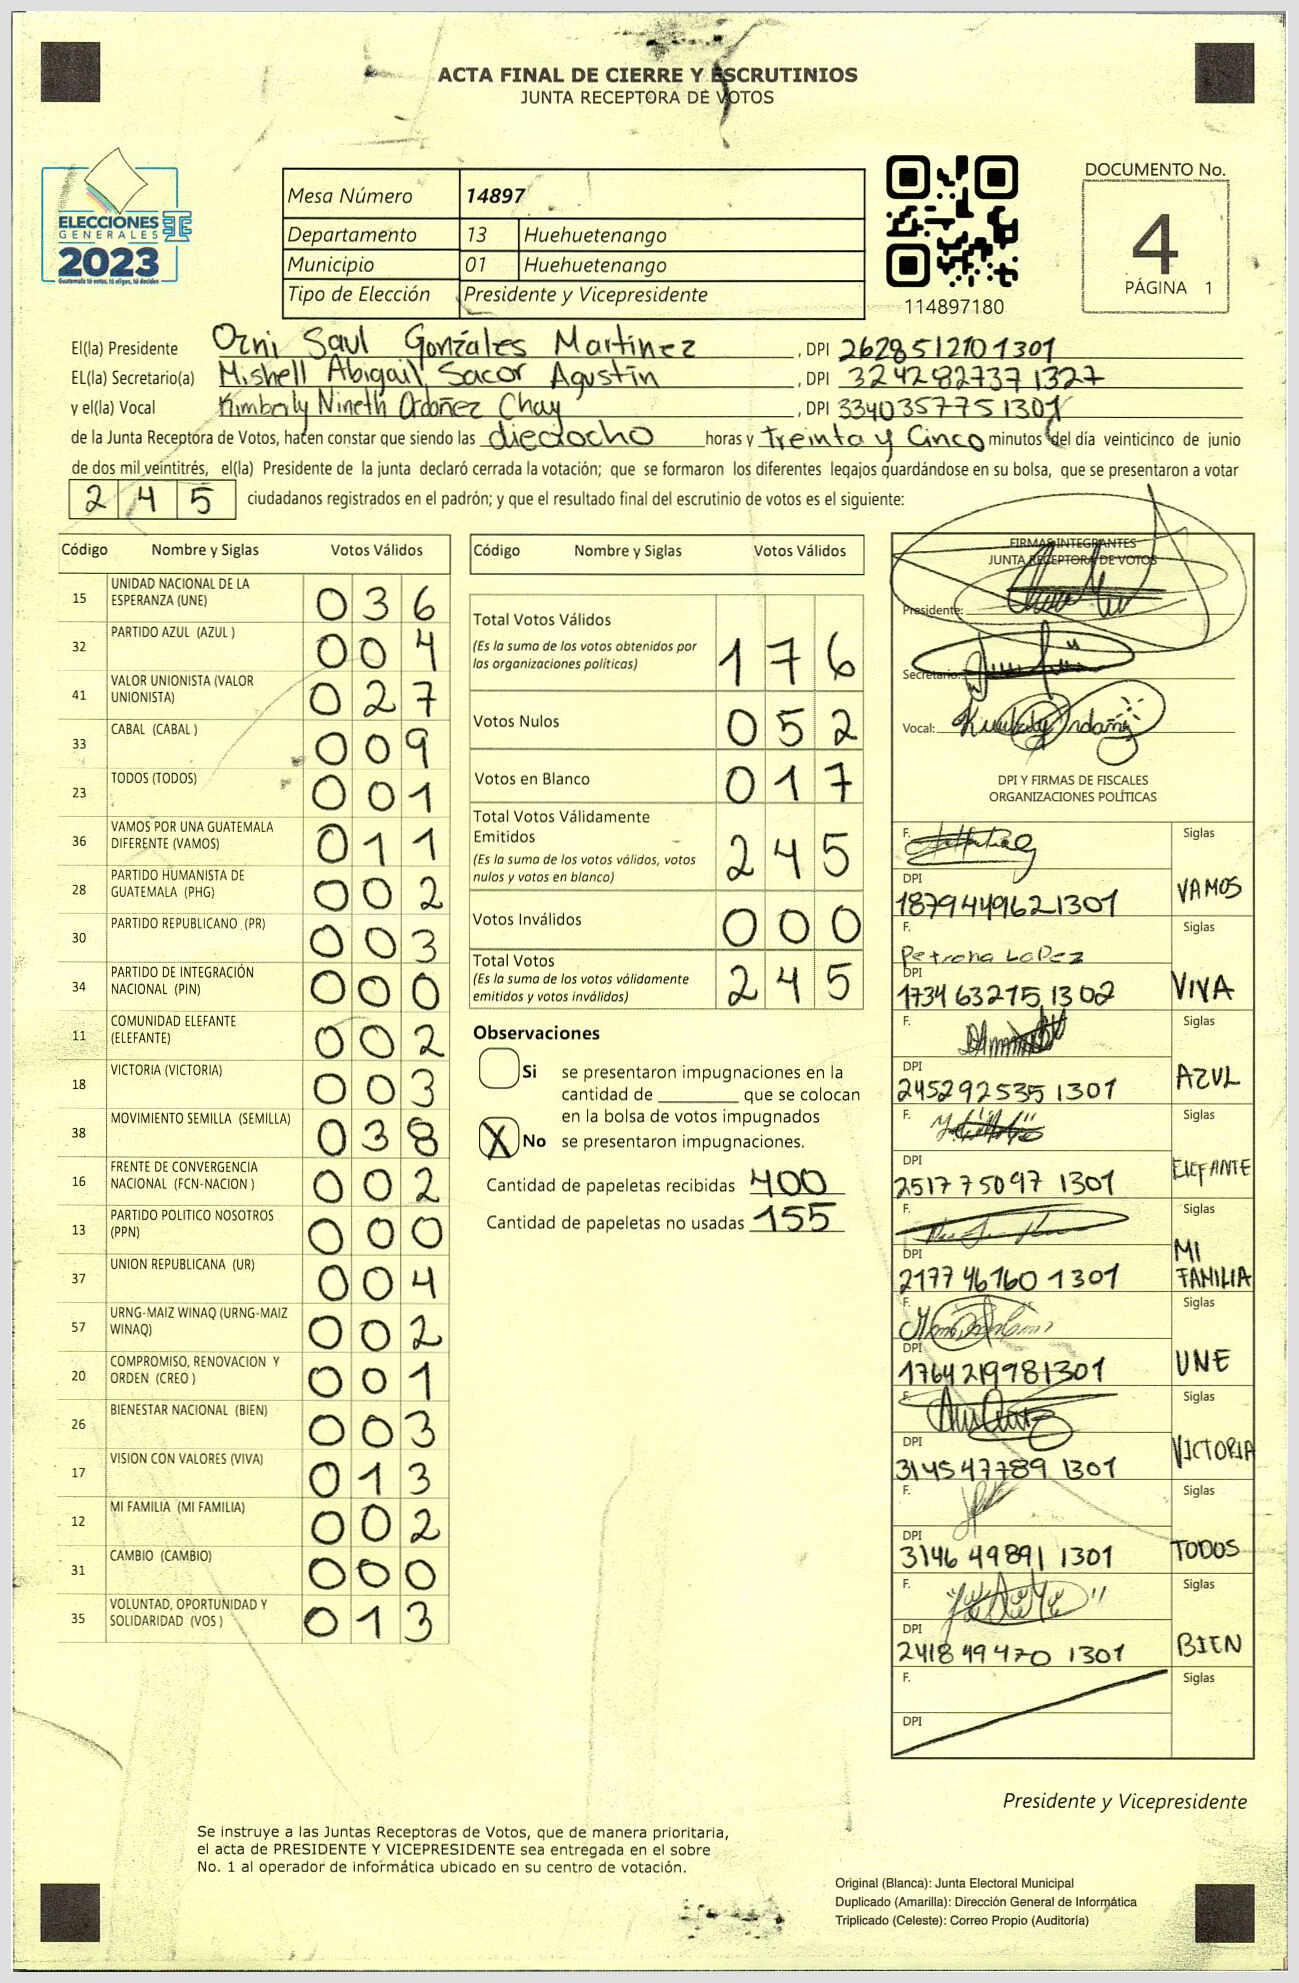 ACTA FINAL DE CIERRE Y ESCRUTINIOS
JUNTA RECEPTORA DE VOTOS
ELECCIONES
GENERALES
2023
Guatemala tú votas, tú eliges, tú decides
TSE
Mesa Número 14897
Departamento 13 Huehuetenango
Municipio 01 Huehuetenango
Tipo de Elección Presidente y Vicepresidente
114897180
DOCUMENTO No.
4
PÁGINA 1
El(la) Presidente Ozni Saul Gonzáles Martinez , DPI 2628512101301
EL(la) Secretario(a) Mishell Abigail Sacor Agustín , DPI 3242827371327
y el(la) Vocal Kimberly Nineth Ordoñez Chay , DPI 3340357751301
de la Junta Receptora de Votos, hacen constar que siendo las dieciocho horas y treinta y Cinco minutos del día veinticinco de junio
de dos mil veintitrés, el(la) Presidente de la junta declaró cerrada la votación; que se formaron los diferentes legajos guardándose en su bolsa, que se presentaron a votar
245 ciudadanos registrados en el padrón; y que el resultado final del escrutinio de votos es el siguiente:
Código Nombre y Siglas Votos Válidos
15 UNIDAD NACIONAL DE LA ESPERANZA (UNE) 036
32 PARTIDO AZUL (AZUL ) 004
41 VALOR UNIONISTA (VALOR UNIONISTA) 027
33 CABAL (CABAL ) 009
23 TODOS (TODOS) 001
36 VAMOS POR UNA GUATEMALA DIFERENTE (VAMOS) 011
28 PARTIDO HUMANISTA DE GUATEMALA (PHG) 002
30 PARTIDO REPUBLICANO (PR) 003
34 PARTIDO DE INTEGRACIÓN NACIONAL (PIN) 000
11 COMUNIDAD ELEFANTE (ELEFANTE) 002
18 VICTORIA (VICTORIA) 003
38 MOVIMIENTO SEMILLA (SEMILLA) 038
16 FRENTE DE CONVERGENCIA NACIONAL (FCN-NACION ) 002
13 PARTIDO POLITICO NOSOTROS (PPN) 000
37 UNION REPUBLICANA (UR) 004
57 URNG-MAIZ WINAQ (URNG-MAIZ WINAQ) 002
20 COMPROMISO, RENOVACION Y ORDEN (CREO ) 001
26 BIENESTAR NACIONAL (BIEN) 003
17 VISION CON VALORES (VIVA) 013
12 MI FAMILIA (MI FAMILIA) 002
31 CAMBIO (CAMBIO) 000
35 VOLUNTAD, OPORTUNIDAD Y SOLIDARIDAD (VOS ) 013
Código Nombre y Siglas Votos Válidos
Total Votos Válidos 176
(Es la suma de los votos obtenidos por
las organizaciones políticas)
Votos Nulos 052
Votos en Blanco 017
Total Votos Válidamente
Emitidos 245
(Es la suma de los votos válidos, votos
nulos y votos en blanco)
Votos Inválidos 000
Total Votos 245
(Es la suma de los votos válidamente
emitidos y votos inválidos)
Observaciones
Si se presentaron impugnaciones en la
cantidad de ________ que se colocan
en la bolsa de votos impugnados
X No se presentaron impugnaciones.
Cantidad de papeletas recibidas 400
Cantidad de papeletas no usadas 155
FIRMAS INTEGRANTES
JUNTA RECEPTORA DE VOTOS
Presidente:
Secretario:
Vocal: Kimberly Ordoñez
DPI Y FIRMAS DE FISCALES
ORGANIZACIONES POLÍTICAS
F. Siglas
DPI
1879449621301 VAMOS
F. Siglas
Petrona LoPez
DPI
1734632151302 VIVA
F. Siglas
DPI
2452925351301 AZUL
F. Siglas
DPI
2517750971301 ELEFANTE
F. Siglas
DPI
2177461601301 MI FAMILIA
F. Siglas
DPI
1764219981301 UNE
F. Siglas
DPI
3145477891301 VICTORIA
F. Siglas
DPI
3146498911301 TODOS
F. Siglas
DPI
2418494701301 BIEN
F. Siglas
DPI
Presidente y Vicepresidente
Se instruye a las Juntas Receptoras de Votos, que de manera prioritaria,
el acta de PRESIDENTE Y VICEPRESIDENTE sea entregada en el sobre
No. 1 al operador de informática ubicado en su centro de votación.
Original (Blanca): Junta Electoral Municipal
Duplicado (Amarilla): Dirección General de Informática
Triplicado (Celeste): Correo Propio (Auditoría)